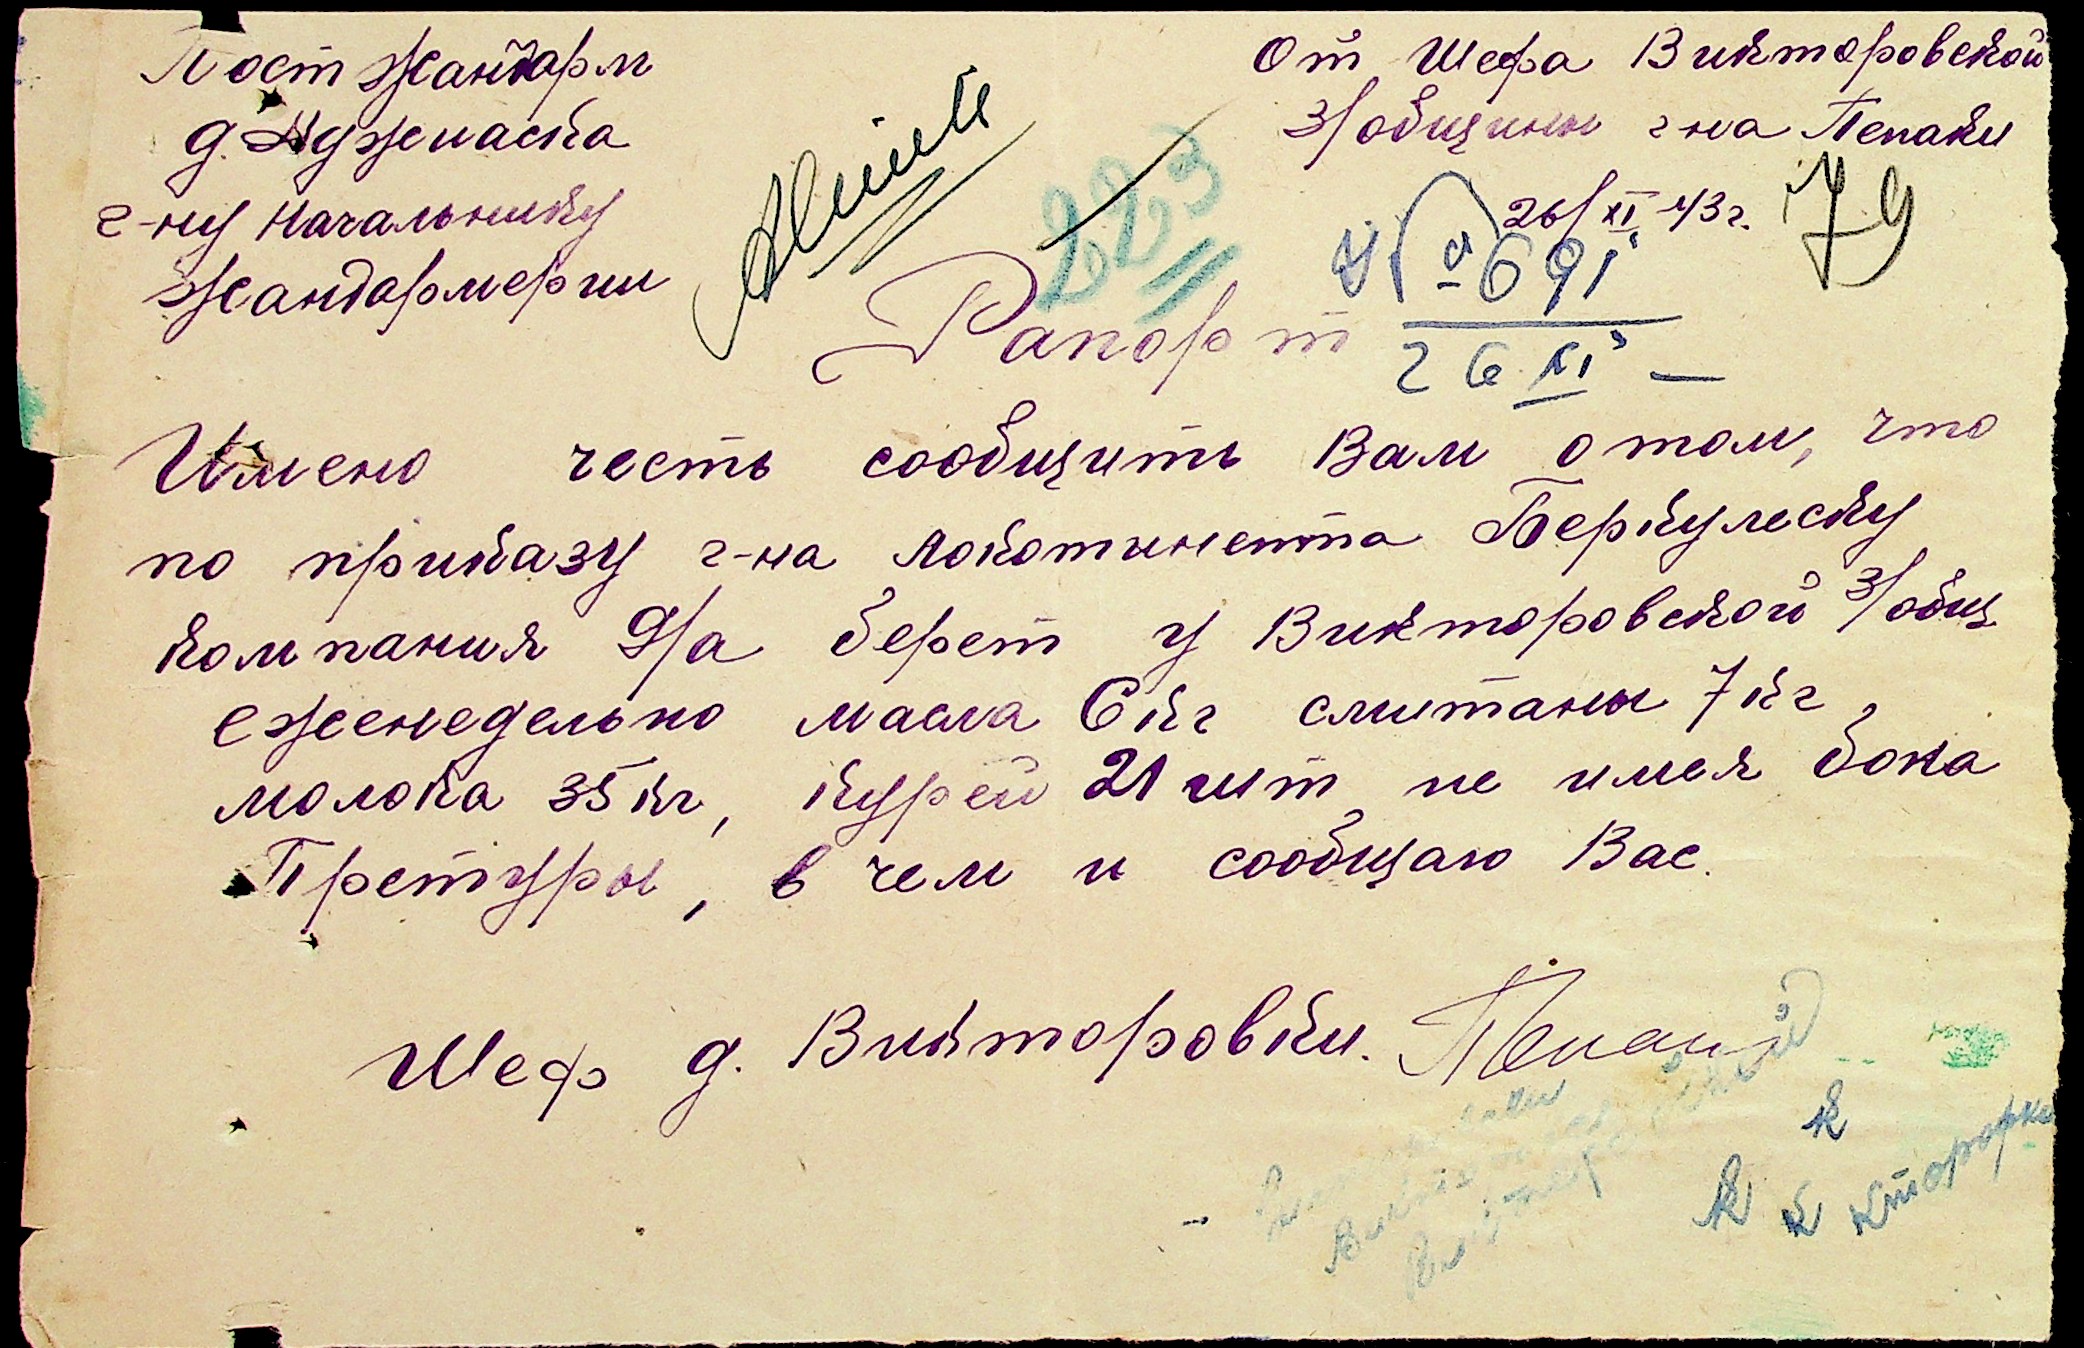 Пост Жандарм
д. Аджиаска
г-ну Начальнику
Жандармерии
От Шефа Викторовской
З/общины г-на Пепаки
26/XI-43 г.
79
223
№ 691
26 XI
Рапорт
Имено честь сообщить Вам о том, что
по приказу г-на локотинента Беркулеску
компания 9/а берет у Викторовской З/общ
еженедельно масла 6 кг смитаны 7 кг,
молока 35 кг, курей 21 шт, не имея бона
Претуры, в чем и сообщаю Вас.
Шеф д. Викторовки. Пепаки
к
к к